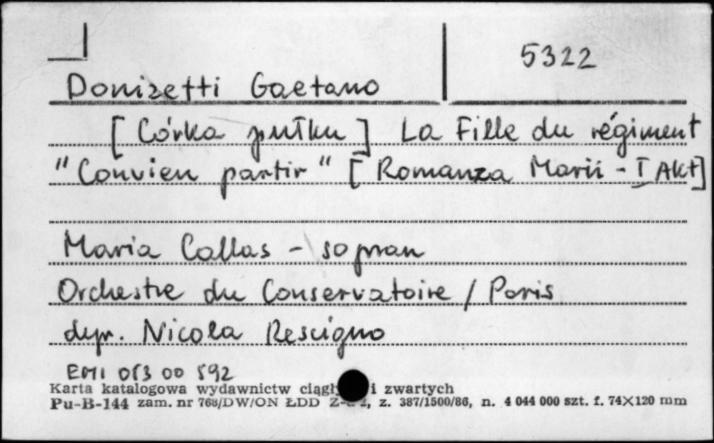 5322
Donizetti Gaetano
[Córka pułku] La Fille du régiment
"Convien partir" [Romanza Marii - I Akt]
Maria Callas - sopran
Orchestre du Conservatoire / Paris
dyr. Nicola Rescigno
EMI 053 00 592
Karta katalogowa wydawnictw i zwartych
Pu-B-144 zam. nr 768/DW/ON ŁDD z. 387/1500/86, n. 4 044 000 szt. f. 74×120 mm